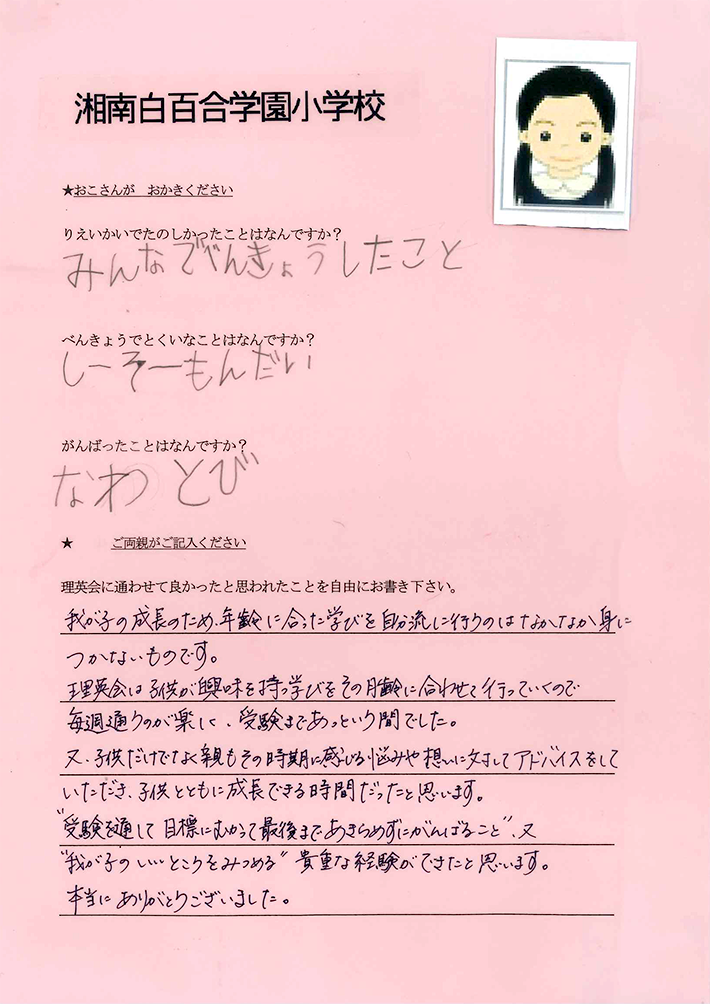 湘南白百合学園小学校
★おこさんが　おかきください
りえいかいでたのしかったことはなんですか？
みんなでべんきょうしたこと
べんきょうでとくいなことはなんですか？
しーそーもんだい
がんばったことはなんですか？
なわとび
★　ご両親がご記入ください
理英会に通わせて良かったと思われたことを自由にお書き下さい。
我が子の成長のため、年齢に合った学びを自分流に行うのはなかなか身に
つかないものです。
理英会は子供が興味を持つ学びをその月齢に合わせて行っていくので
毎週通うのが楽しく、受験まであっという間でした。
又、子供だけでなく親もその時期に感じる悩みや想いに対してアドバイスをして
いただき、子供とともに成長できる時間だったと思います。
"受験を通して目標にむかって最後まであきらめずにがんばること"、又
"我が子のいいところをみつめる"貴重な経験ができたと思います。
本当にありがとうございました。